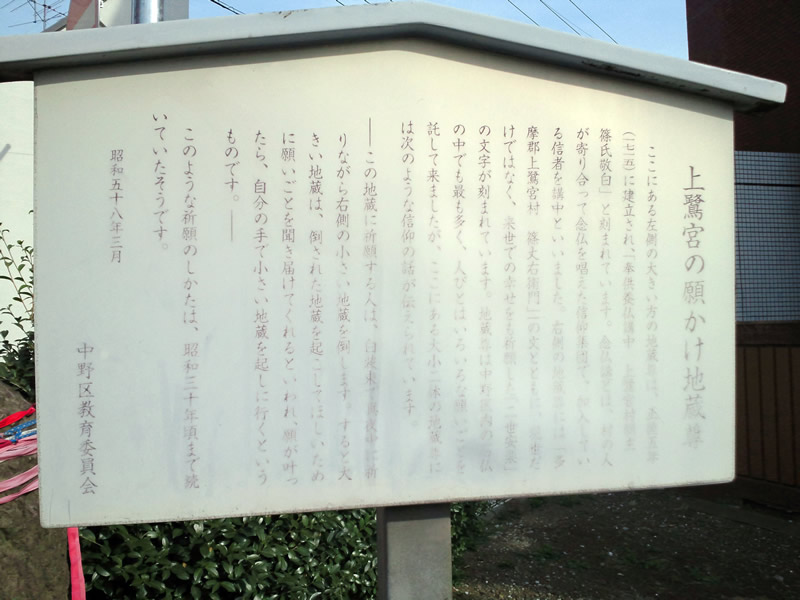 上鷺宮の願かけ地蔵尊
ここにある左側の大きい方の地蔵尊は、正徳五年
(一七一五)に建立され、「奉供養仏講中 上鷺宮村講主
篠氏敬白」と刻まれています。念仏講とは、村の人
が寄り合って念仏を唱えた信仰集団で、加入してい
る信者を講中といいました。右側の地蔵尊には「多
摩郡上鷺宮村 篠丈右衛門」の文とともに、
けではなく、来世での幸せをも祈願する「二世安楽」
の文字が刻まれています。地蔵尊は中野区内の石仏
の中でも最も多く、人びとはいろいろな願いごとを
託して来ましたが、ここにある大小二体の地蔵尊に
は次のような信仰の話が伝えられています。
――この地蔵に祈願する人は、
りながら右側の小さい地蔵を倒します。すると大
きい地蔵は、倒された地蔵を起こしてほしいため
に願いごとを聞き届けてくれるといわれ、願が叶っ
たら、自分の手で小さい地蔵を起しに行くという
ものです。――
このような祈願のしかたは、昭和三十年頃まで続
いていたそうです。
昭和五十八年三月
中野区教育委員会